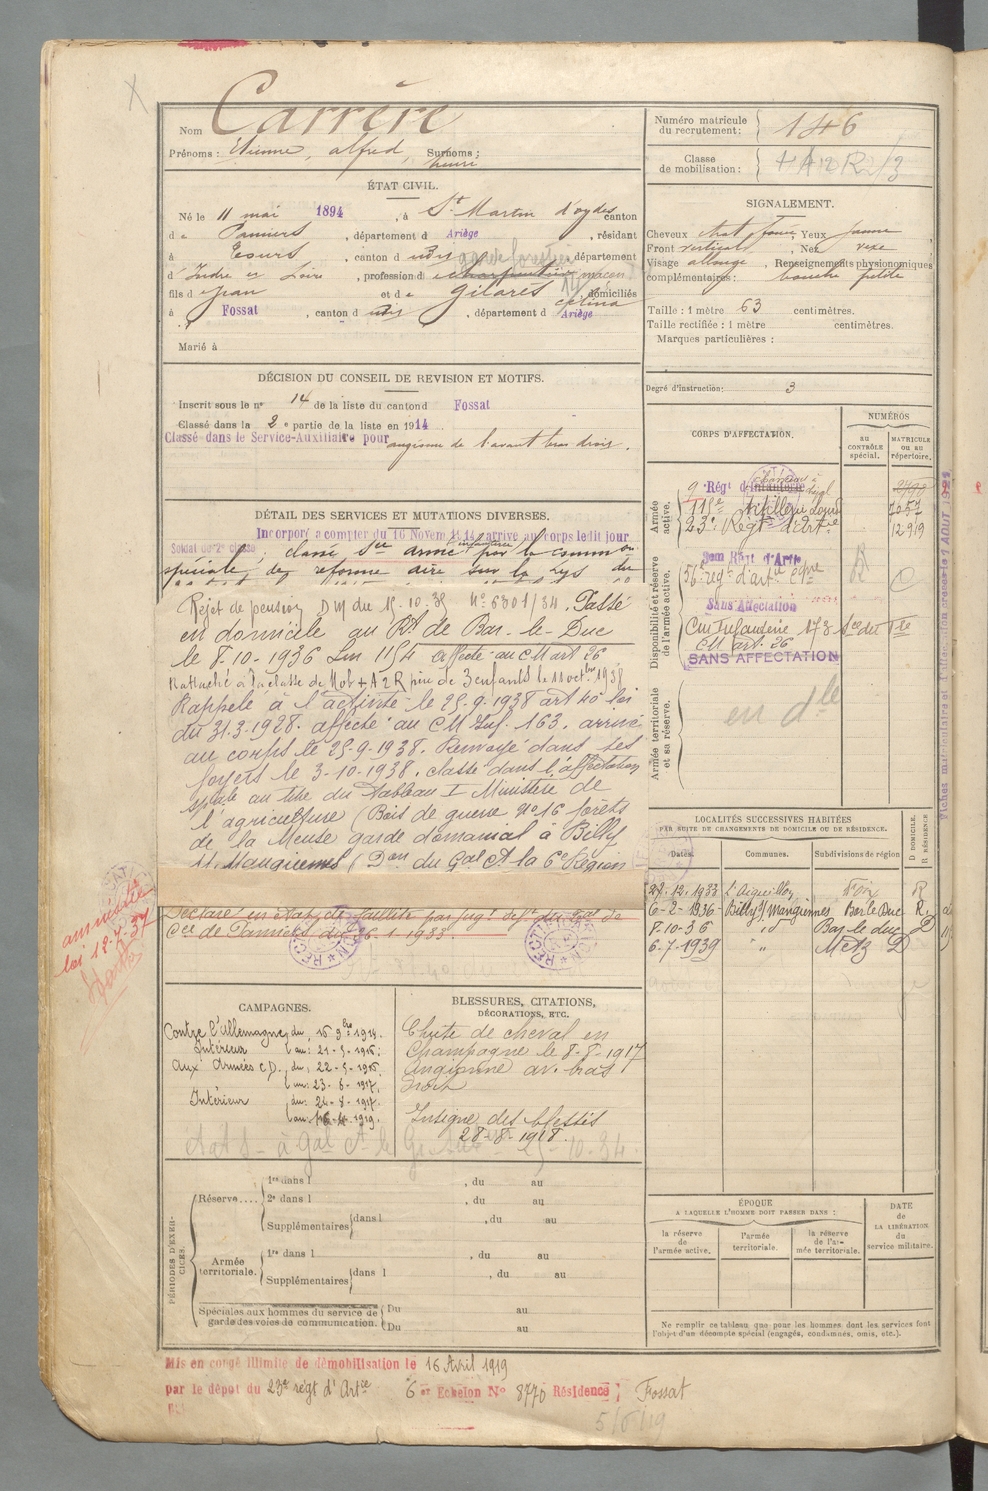 Nom Carrère
Prénoms : Etienne, alfred, Surnoms :
henri
ÉTAT CIVIL.
Né le 11 mai 1894, à St Martin d'oydes canton
de Pamiers, département d Ariège, résidant
à Tours, canton d udit garde forestier département
d'Indre et Loire, profession d charpentier maçon
fils de Jean et de Gilarès célina domiciliés
à Fossat, canton d udit, département d Ariège
Marié à
DÉCISION DU CONSEIL DE REVISION ET MOTIFS.
Inscrit sous le n° 14 de la liste du canton d Fossat
Classé dans la 2e partie de la liste en 1914
Classé dans le Service-Auxiliaire pour angiome de l'avant bras droit.
DÉTAIL DES SERVICES ET MUTATIONS DIVERSES.
Incorporé à compter du 16 Novem 1914 arrivé au corps ledit jour
Soldat de 2e classe; classé Sce armé par la comm on
spéciale de réforme
Rejet de pension DM du 15.10.35 N° 6301/34. Passé
en domicile au Rt de Bar-le-Duc
le 8-10-1936 Lm 1154 affecté au CM art 26
Rattaché à la classe de Mob 4A2R père de 3 enfants le 11 octbre 1938
Rappelé à l'activité le 25-9-1938 art 40 loi
du 31-3-1928. affecté au CM Inf. 163. arrivé
au corps le 25-9-1938. Renvoyé dans ses
foyers le 3-10-1938. classé dans l'affectation
spéciale au titre du Tableau I Ministère de
l'agriculture (Bois de guerre N° 16 forêts
de la Meuse garde domanial à Billy
s/s Mangiennes (Don du Gal Ct la 6e Région
Déclaré en état de faillite par jugt deft du Tal de
Cce de Pamiers du 26-1-1933.
RECTIFICATION
RECTIFICATION
amnistié
loi 12-7-37
CAMPAGNES.
Contre l'Allemagne, du 16 9bre 1914.
Intérieur au: 21-5-1915;
Aux Armées C.D., du; 22-5-1915
au: 23-8-1917,
Intérieur du: 24-8-1917.
au: 16-4-1919.
BLESSURES, CITATIONS,
DÉCORATIONS, ETC.
Chute de cheval en
Champagne le 8-8-1917
Angiome av. bras
droit
Insigne des blessés
28-8-1918.
PÉRIODES D'EXERCICES.
Réserve.... 1re dans l , du au
2e dans l , du au
Supplémentaires dans l , du au
Armée territoriale. 1re dans l , du au
Supplémentaires dans l , du au
Spéciales aux hommes du service de garde des voies de communication. Du au
Du au
Mis en congé illimité de démobilisation le 16 Avril 1919
par le dépôt du 23e régt d'Artie 6e Echelon N° 8770 Résidence; Fossat
5/6/19
Numéro matricule
du recrutement: 146
Classe
de mobilisation:
SIGNALEMENT.
Cheveux chat foncé, Yeux jaune
Front vertical, Nez vexe
Visage allongé, Renseignements physionomiques
complémentaires: bouche petite
Taille : 1 mètre 63 centimètres.
Taille rectifiée : 1 mètre centimètres.
Marques particulières :
Degré d'instruction: 3
CORPS D'AFFECTATION.
NUMÉROS
AU CONTRÔLE spécial.
MATRICULE OU AU répertoire.
Armée active.
9 Régt d'Infanterie
115e Artillerie Lourde 7057
23e Régt d'Artie 12919
Disponibilité et réserve de l'armée active.
56e régt d'artie C
Sans Affectation
CM Infanterie 173
CM art. 26
SANS AFFECTATION
Armée territoriale et sa réserve.
en dle
LOCALITÉS SUCCESSIVES HABITÉES
PAR SUITE DE CHANGEMENTS DE DOMICILE OU DE RÉSIDENCE.
D DOMICILE. R RÉSIDENCE
Dates. Communes. Subdivisions de région
27.12.1933 L'Aiguillon Foix R
6-2-1936- Billy s/ Mangiennes Bar le Duc R
8.10-36 " Bar le duc D
6-7-1939 " " Metz D
ÉPOQUE
A LAQUELLE L'HOMME DOIT PASSER DANS :
la réserve de l'armée active.
l'armée territoriale.
la réserve de l'armée territoriale.
DATE de LA LIBÉRATION du service militaire.
Ne remplir ce tableau que pour les hommes dont les services font
l'objet d'un décompte spécial (engagés, condamnés, omis, etc.).